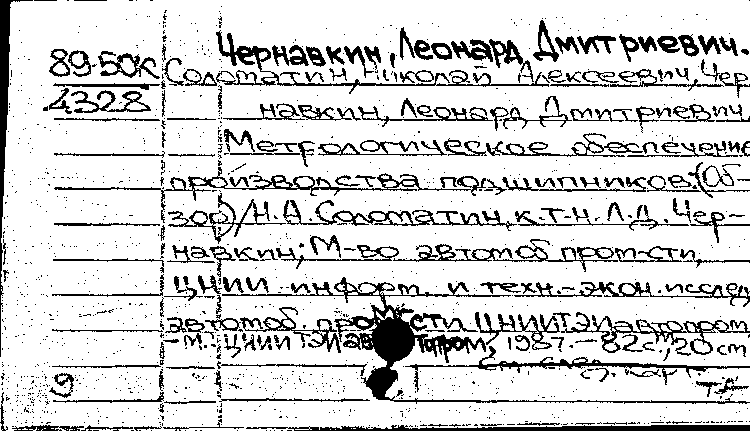 Чернавкин, Леонард Дмитриевич.
89-50К
4328
Соломатин, Николай Алексеевич, Чер
навкин, Леонард Дмитриевич
Метрологическое обеспечение
производства подшипников: (Об-
зор)/Н.А. Соломатин, к.т.н. Л.Д. Чер-
навкин; М-во автомоб пром-сти,
ЦНИИ информ. и техн.-экон. исслед
автомоб. пром-сти ЦНИИТЭИавтопром
-М.: ЦНИИТЭИавтопром, 1987.-82с., 20 см
См. след.
карт
9